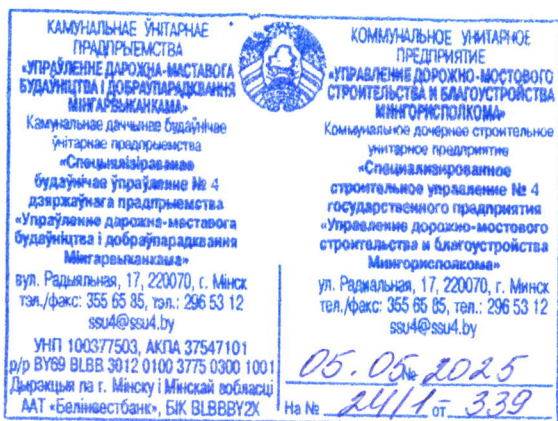 КАМУНАЛЬНАЕ ЎНІТАРНАЕ
ПРАДПРЫЕМСТВА
«УПРАЎЛЕННЕ ДАРОЖНА-МАСТАВОГА
БУДАЎНІЦТВА І ДОБРАЎПАРАДКВАННЯ
МІНГАРВЫКАНКАМА»
Камунальнае даччынае будаўнічае
ўнітарнае прадпрыемства
«Спецыялізіраванае
будаўнічае ўпраўленне № 4
дзяржаўнага прадпрыемства
«Упраўленне дарожна-маставога
будаўніцтва і добраўпарадкавання
Мінгарвыканкама»
вул. Радыяльная, 17, 220070, г. Мінск
тэл./факс: 355 65 85, тэл.: 296 53 12
ssu4@ssu4.by
УНП 100377503, АКПА 37547101
р/р BY69 BLBB 3012 0100 3775 0300 1001
Дырэкцыя па г. Мінску і Мінскай вобласці
ААТ «Белінвестбанк», БІК BLBBBY2X
КОММУНАЛЬНОЕ УНИТАРНОЕ
ПРЕДПРИЯТИЕ
«УПРАВЛЕНИЕ ДОРОЖНО-МОСТОВОГО
СТРОИТЕЛЬСТВА И БЛАГОУСТРОЙСТВА
МИНГОРИСПОЛКОМА»
Коммунальное дочернее строительное
унитарное предприятие
«Специализированное
строительное управление № 4
государственного предприятия
«Управление дорожно-мостового
строительства и благоустройства
Мингорисполкома»
ул. Радиальная, 17, 220070, г. Минск
тел./факс: 355 65 85, тел.: 296 53 12
ssu4@ssu4.by
05.05 № 2025
На № 24/1 от 339